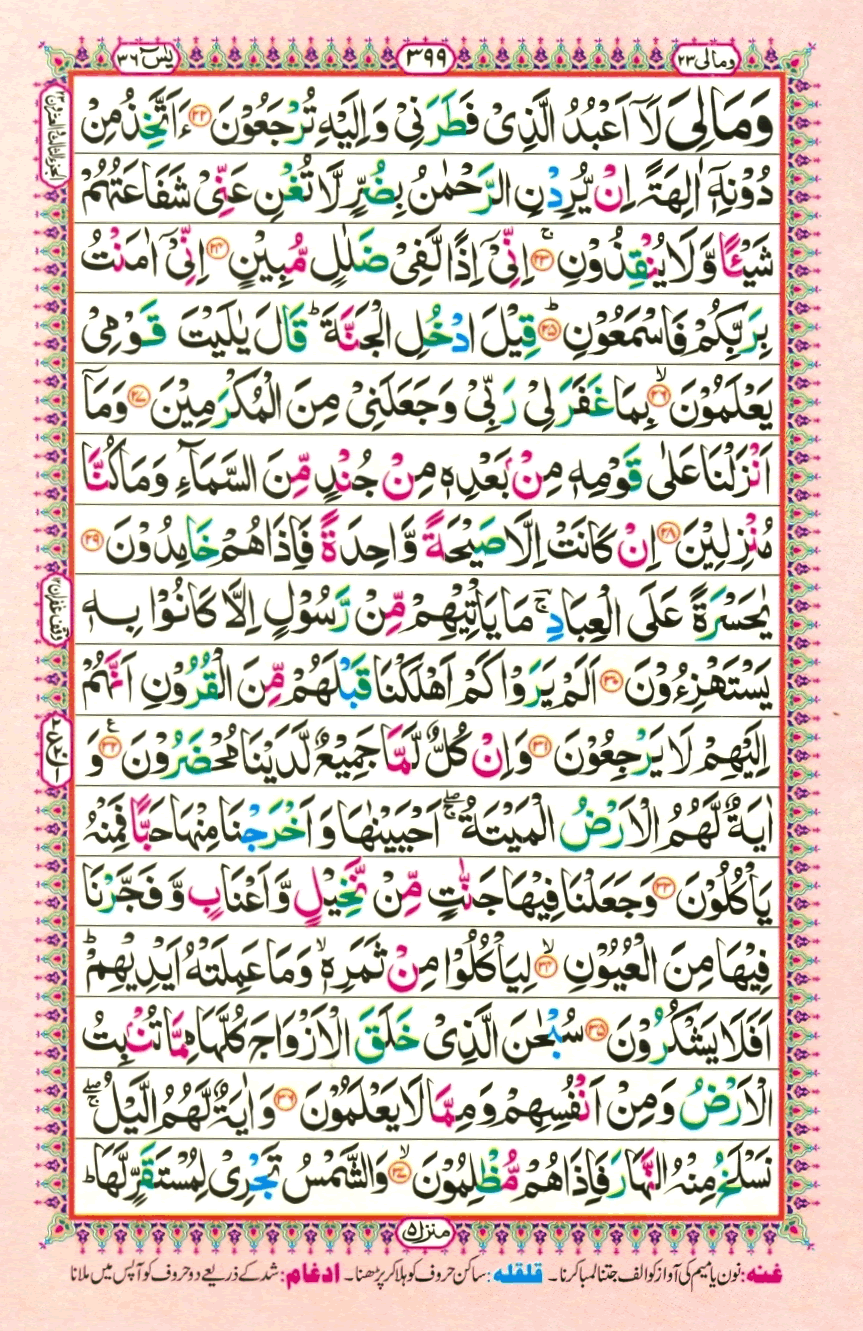 وما لی ٢٣
٣٩٩
یٰسٓ ٣٦
وَمَا لِیَ لَاۤ اَعْبُدُ الَّذِیْ فَطَرَنِیْ وَ اِلَیْهِ تُرْجَعُوْنَ ٢٢ ءَاَتَّخِذُ مِنْ
دُوْنِهٖۤ اٰلِهَةً اِنْ یُّرِدْنِ الرَّحْمٰنُ بِضُرٍّ لَّا تُغْنِ عَنِّیْ شَفَاعَتُهُمْ
شَیْـًٔا وَّ لَا یُنْقِذُوْنِ ۚ ٢٣ اِنِّیْۤ اِذًا لَّفِیْ ضَلٰلٍ مُّبِیْنٍ ٢٤ اِنِّیْۤ اٰمَنْتُ
بِرَبِّكُمْ فَاسْمَعُوْنِ ؕ ٢٥ قِیْلَ ادْخُلِ الْجَنَّةَ ؕ قَالَ یٰلَیْتَ قَوْمِیْ
یَعْلَمُوْنَ ۙ ٢٦ بِمَا غَفَرَ لِیْ رَبِّیْ وَ جَعَلَنِیْ مِنَ الْمُكْرَمِیْنَ ٢٧ وَ مَاۤ
اَنْزَلْنَا عَلٰی قَوْمِهٖ مِنْۢ بَعْدِهٖ مِنْ جُنْدٍ مِّنَ السَّمَآءِ وَ مَا كُنَّا
مُنْزِلِیْنَ ٢٨ اِنْ كَانَتْ اِلَّا صَیْحَةً وَّاحِدَةً فَاِذَا هُمْ خٰمِدُوْنَ ٢٩
یٰحَسْرَةً عَلَی الْعِبَادِ ۚ مَا یَاْتِیْهِمْ مِّنْ رَّسُوْلٍ اِلَّا كَانُوْا بِهٖ
یَسْتَهْزِءُوْنَ ٣٠ اَلَمْ یَرَوْا كَمْ اَهْلَكْنَا قَبْلَهُمْ مِّنَ الْقُرُوْنِ اَنَّهُمْ
اِلَیْهِمْ لَا یَرْجِعُوْنَ ٣١ وَ اِنْ كُلٌّ لَّمَّا جَمِیْعٌ لَّدَیْنَا مُحْضَرُوْنَ ٣٢ ع وَ
اٰیَةٌ لَّهُمُ الْاَرْضُ الْمَیْتَةُ ۖۚ اَحْیَیْنٰهَا وَ اَخْرَجْنَا مِنْهَا حَبًّا فَمِنْهُ
یَاْكُلُوْنَ ٣٣ وَ جَعَلْنَا فِیْهَا جَنّٰتٍ مِّنْ نَّخِیْلٍ وَّ اَعْنَابٍ وَّ فَجَّرْنَا
فِیْهَا مِنَ الْعُیُوْنِ ۙ ٣٤ لِیَاْكُلُوْا مِنْ ثَمَرِهٖ ۙ وَ مَا عَمِلَتْهُ اَیْدِیْهِمْ ؕ
اَفَلَا یَشْكُرُوْنَ ٣٥ سُبْحٰنَ الَّذِیْ خَلَقَ الْاَزْوَاجَ كُلَّهَا مِمَّا تُنْۢبِتُ
الْاَرْضُ وَ مِنْ اَنْفُسِهِمْ وَ مِمَّا لَا یَعْلَمُوْنَ ٣٦ وَ اٰیَةٌ لَّهُمُ الَّیْلُ ۖۚ
نَسْلَخُ مِنْهُ النَّهَارَ فَاِذَا هُمْ مُّظْلِمُوْنَ ۙ ٣٧ وَ الشَّمْسُ تَجْرِیْ لِمُسْتَقَرٍّ لَّهَا ؕ
الجزء الثالث والعشرون ٢٣
وقف غفران
منزل ٥
غنه: نون یا میم کی آواز کو الف جتنا لمبا کرنا۔ قلقله: ساکن حروف کو ہلا کر پڑھنا۔ ادغام: شد کے ذریعے دو حروف کو آپس میں ملانا